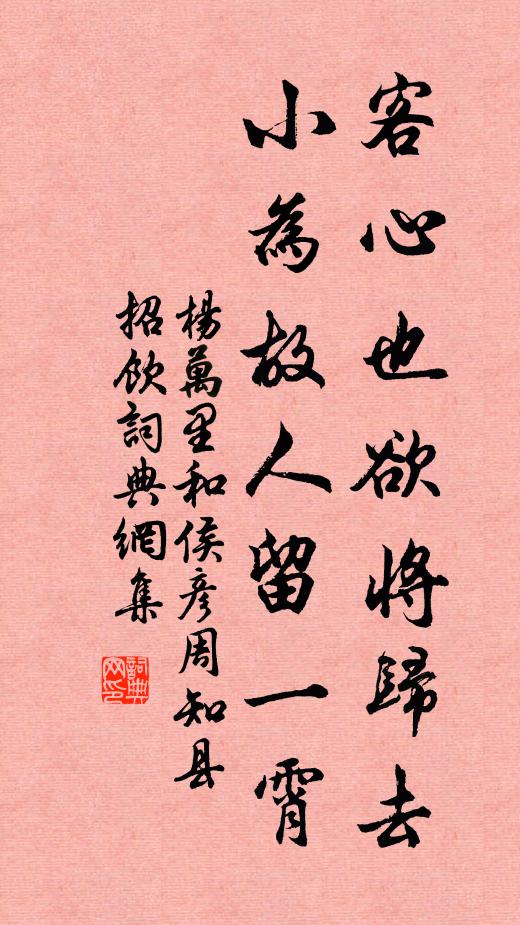 客心也欲将歸去
小為故人留一霄
楊萬里和侯彦周知县
招飲詞典網集
詞典网印